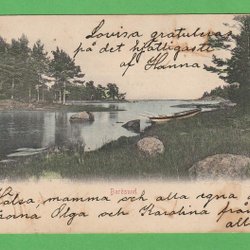 Lovisa gratuleras
på det hjärtligaste
af Hanna
Barösund.
Hälsa, mamma och alla egna
Hanna Olga och Karolina från
all